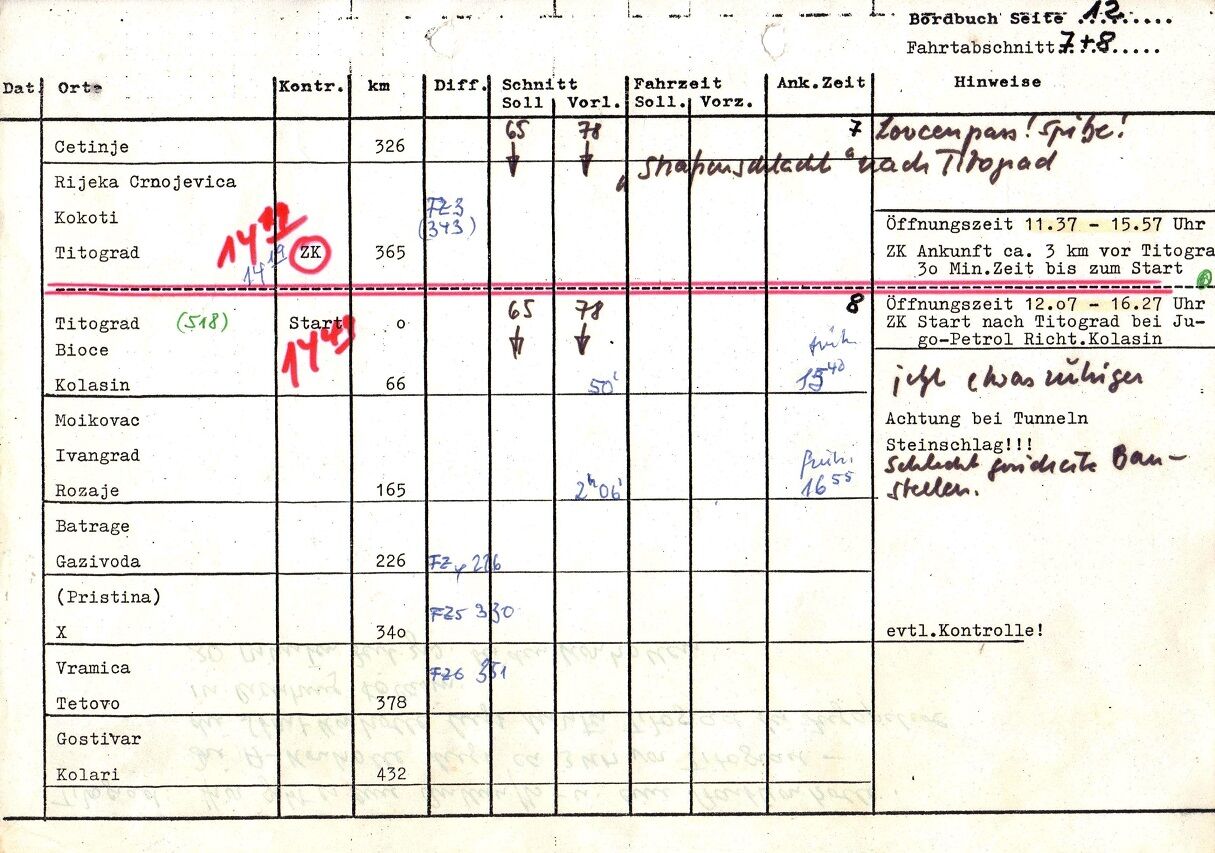 Bordbuch Seite 12
Fahrtabschnitt 7+8
Dat. Orte Kontr. km Diff. Schnitt Fahrzeit Ank.Zeit Hinweise
Soll Vorl. Soll. Vorz.
65 78 7 Lovcenpass! Spitze!
Cetinje 326
"Straßenschlacht" nach Titograd
Rijeka Crnojevica
FZ3
Kokoti (343)
Öffnungszeit 11.37 - 15.57 Uhr
14
Titograd 14 19 ZK 365 ZK Ankunft ca. 3 km vor Titogra
3o Min.Zeit bis zum Start
65 78 8 Öffnungszeit 12.o7 - 16.27 Uhr
Titograd (518) Start o ZK Start nach Titograd bei Ju-
go-Petrol Richt.Kolasin
14 49
Bioce früh.
Kolasin 66 50' 15 40 jetzt etwas ruhiger
Moikovac Achtung bei Tunneln
Steinschlag!!!
Ivangrad früh. schlecht gesicherte Bau-
Rozaje 165 2h 06' 16 55 stellen.
Batrage
Gazivoda 226 FZ4 226
(Pristina)
FZ5 330
X 34o evtl.Kontrolle!
Vramica FZ6 351
Tetovo 378
Gostivar
Kolari 432